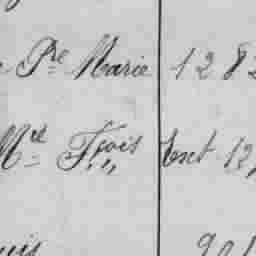 Pre Marie 1282
Md Frois Exct 12,
uis 901